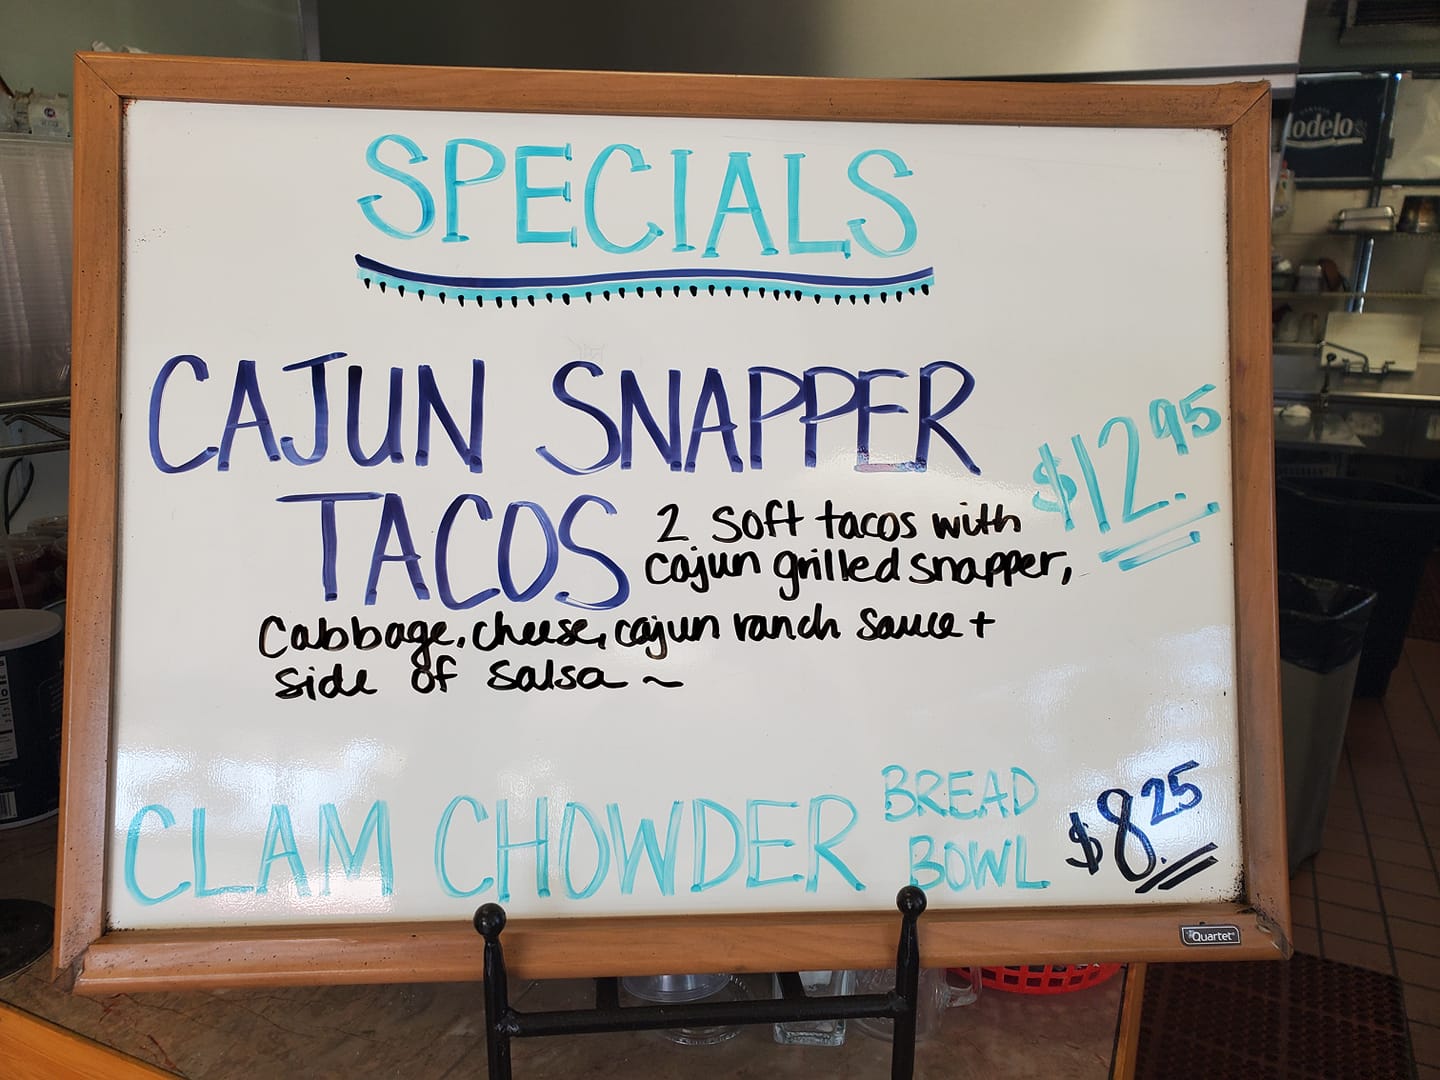 SPECIALS
CAJUN SNAPPER
TACOS
2 soft tacos with
cajun grilled snapper,
Cabbage, cheese, cajun ranch sauce +
side of salsa ~
$12.95
CLAM CHOWDER
BREAD
BOWL
$8.25
Quartet
odelo